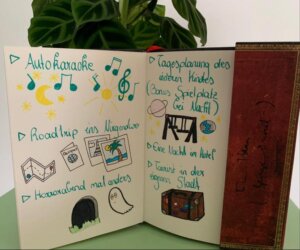 ▷ Autokaraoke
▷ Roadtrip ins Nirgendwo
▷ Horrorabend mal anders
▷ Tagesplanung des
inneren Kindes
(Bonus: Spielplatz
bei Nacht)
▷ Eine Nacht im Hotel
▷ Tourist in der
eigenen Stadt